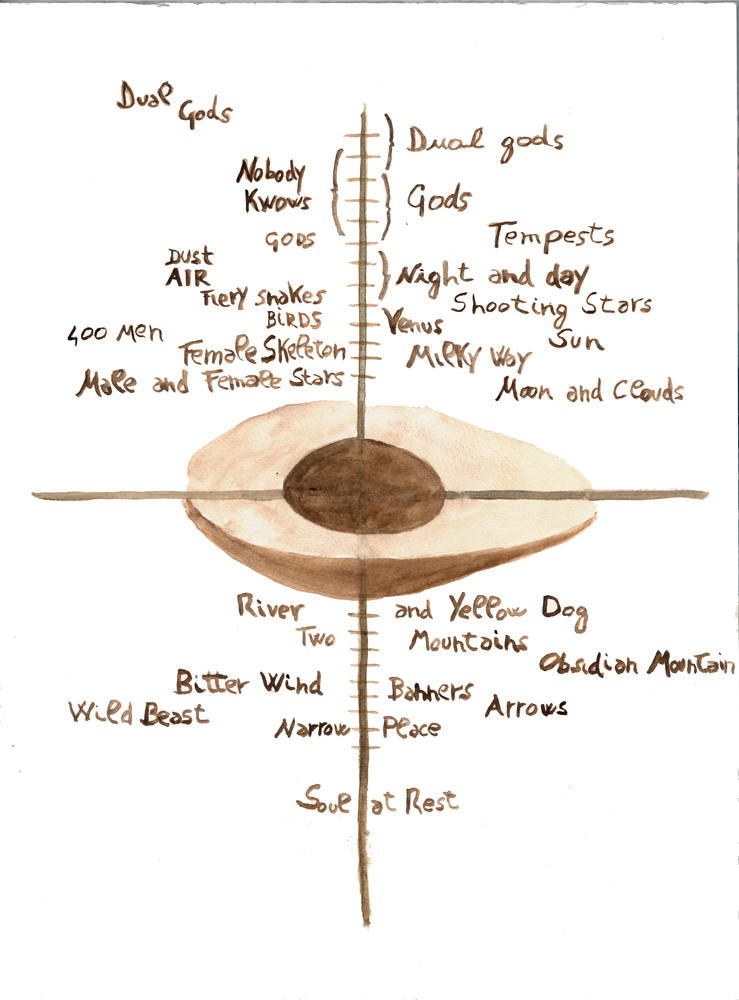 Dual Gods
Dual gods
Nobody
Kwows
Gods
GODS
Tempests
DUST
AIR
Night and day
Fiery snakes
Shooting Stars
BIRDS
Venus
400 Men
Sun
Female Skeleton
Milky Way
Male and Female Stars
Moon and Clouds
River and Yellow Dog
Two Mountains
Obsidian Mountain
Bitter Wind
Banners
Wild Beast
Arrows
Narrow Place
Soul at Rest